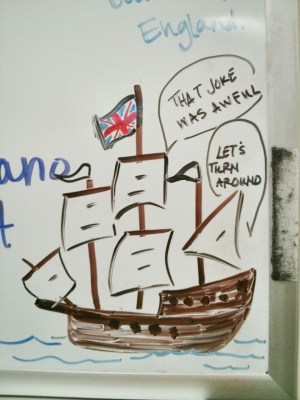 England.
THAT JOKE
WAS AWFUL
LET'S
TURN
AROUND